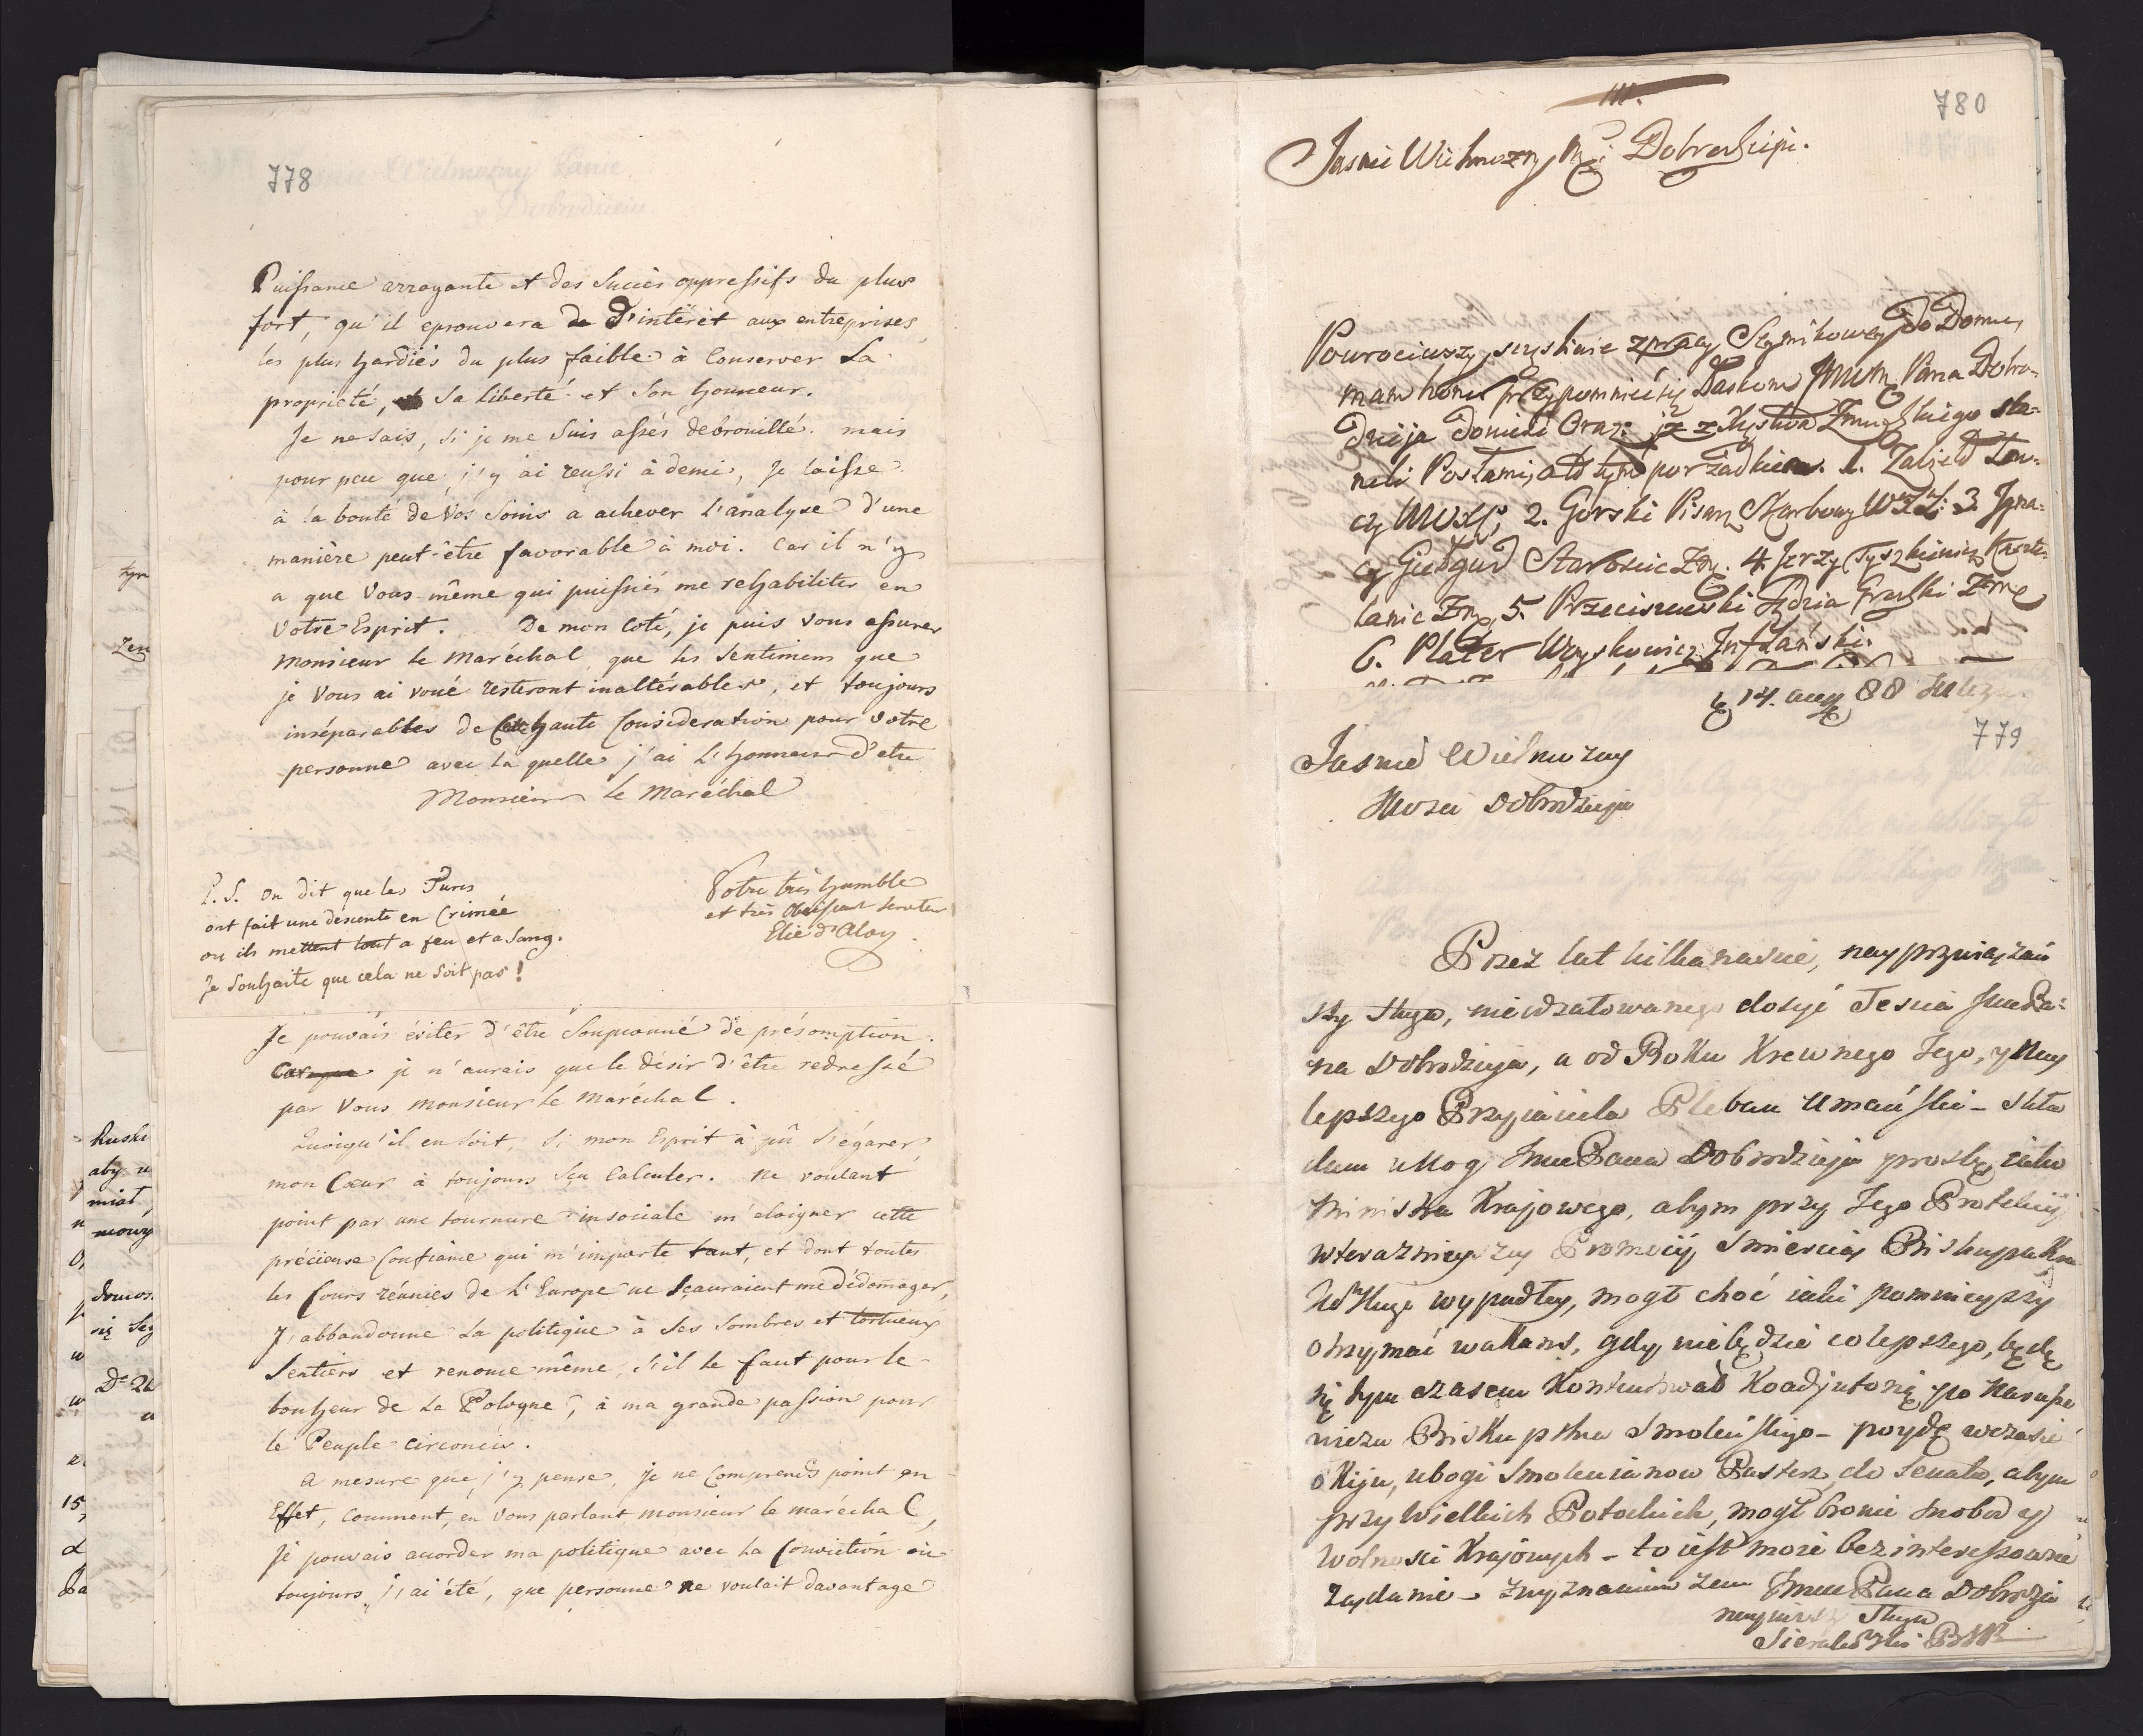 778
Puissance arrogante et des Succès oppressifs du plus
fort, qu'il eprouvera de D'intérêt aux entreprises
les plus hardiés du plus faible à Conserver Sa
propriété, Sa liberté et Son honneur.
Je ne Sais, Si je me Suis assés debrouillé. mais
pour peu que j'y ai reussi à demi, Je laisse
à la bonté de Vos Soins a achever L'analyse D'une
manière peut-être favorable à moi. Car il n'y
a que Vous-même qui puissiés me rehabiliter en
Votre Esprit. De mon Coté, je puis Vous assurer
Monsieur le Maréchal que les Sentimens que
je Vous ai voué resteront inaltérables, et toujours
inséparables de Cette haute Consideration pour Votre
personne avec la quelle j'ai L'honneur D'etre
Monsieur le Maréchal
Votre très humble
et très Obeissant Serviteur
Elie d'Aloy
P. S. On dit que les Turcs
ont fait une descente en Crimée
ou ils mettent tout a feu et a Sang.
Je Souhaite que cela ne Soit pas!
Je pouvais éviter d'être Soupconné de présomption.
Car je n'aurais que le désir d'être redressé
par Vous Monsieur le Maréchal.
Quoiqu'il en Soit, Si mon Esprit à pû S'égarer,
mon Cœur à toujours Sçu Calculer. Ne voulant
point par une tournure insociale m'eloigner cette
précieuse Confiance qui m'importe tant, et dont toutes
les Cours réunies de L'Europe ne Sçauraient me Dédomager,
J'abbandonne la politique à Ses Sombres et tortueux
Sentiers et renonce même, S'il le faut pour le
bonheur de la Pologne, à ma grande passion pour
le Peuple circoncis.
A mesure que j'y pense, je ne Comprends point en
Effet, Comment, en Vous parlant Monsieur le maréchal,
Je pouvais accorder ma politique avec la Conviction où
toujours j'ai été, que personne ne voulait davantage
780
Jasnie Wielmożny Dobrodzieju.
Powrociwszy szczesliwie z pracy Seymikowey do Domu,
mam honor przypomnieć się Łaskom JWWM Pana Dobro-
dzieja Donieść Oraz: iż z Xięstwa Zmudzkiego sta-
neli Posłami, a to tym porządkiem. 1. Zaliski Łow-
czy WXL, 2. Gorski Pisarz Skarbowy WXL: 3. Igna-
cy Giełgud Starościc Zm. 4. Jerzy Tyszkiewicz Kaszte-
lanic Zm, 5. Przeciszewski Sędzia Grodzki Zmu
6. Plater Woyskowicz Inflanski.
14. aug 88
779
Jasnie Wielmozny
Mosci Dobrodzieju
Przez lat kilkanascie, nayprzywiązań
szy Sługa, nieodzałowanego dosyć Tescia JmcPa:
na Dobrodzieja, a od Roku Krewnego Jego, y Nay
lepszego Przyiaciela Pleban Umański - skła
dam u Nog JmcPana Dobrodzieja prosbę, iako
Ministra Krajowego, abym przy Jego Protekcij
w teraznieyszey Promocij Smiercią Biskupa
wypadłey, mogł choć iaki pomnieyszy
otrzymać wakans, gdy nie będzie co lepszego, będę
się tym czasem Kontentował Koadjutorią po Narusze
wiczu Biskupstwa Smoleńskiego - poydę w czasie
o Kiju, ubogi Smolenianow Pasterz, do Senatu, abym
przy Wielkich Potockich, mogł bronić swobod y
Wolnosci Krajowych - to iest moie bezinteressowne
Ządanie - z wyznaniem zem JmcPana Dobrodzieja
Sługa
Sierakowski